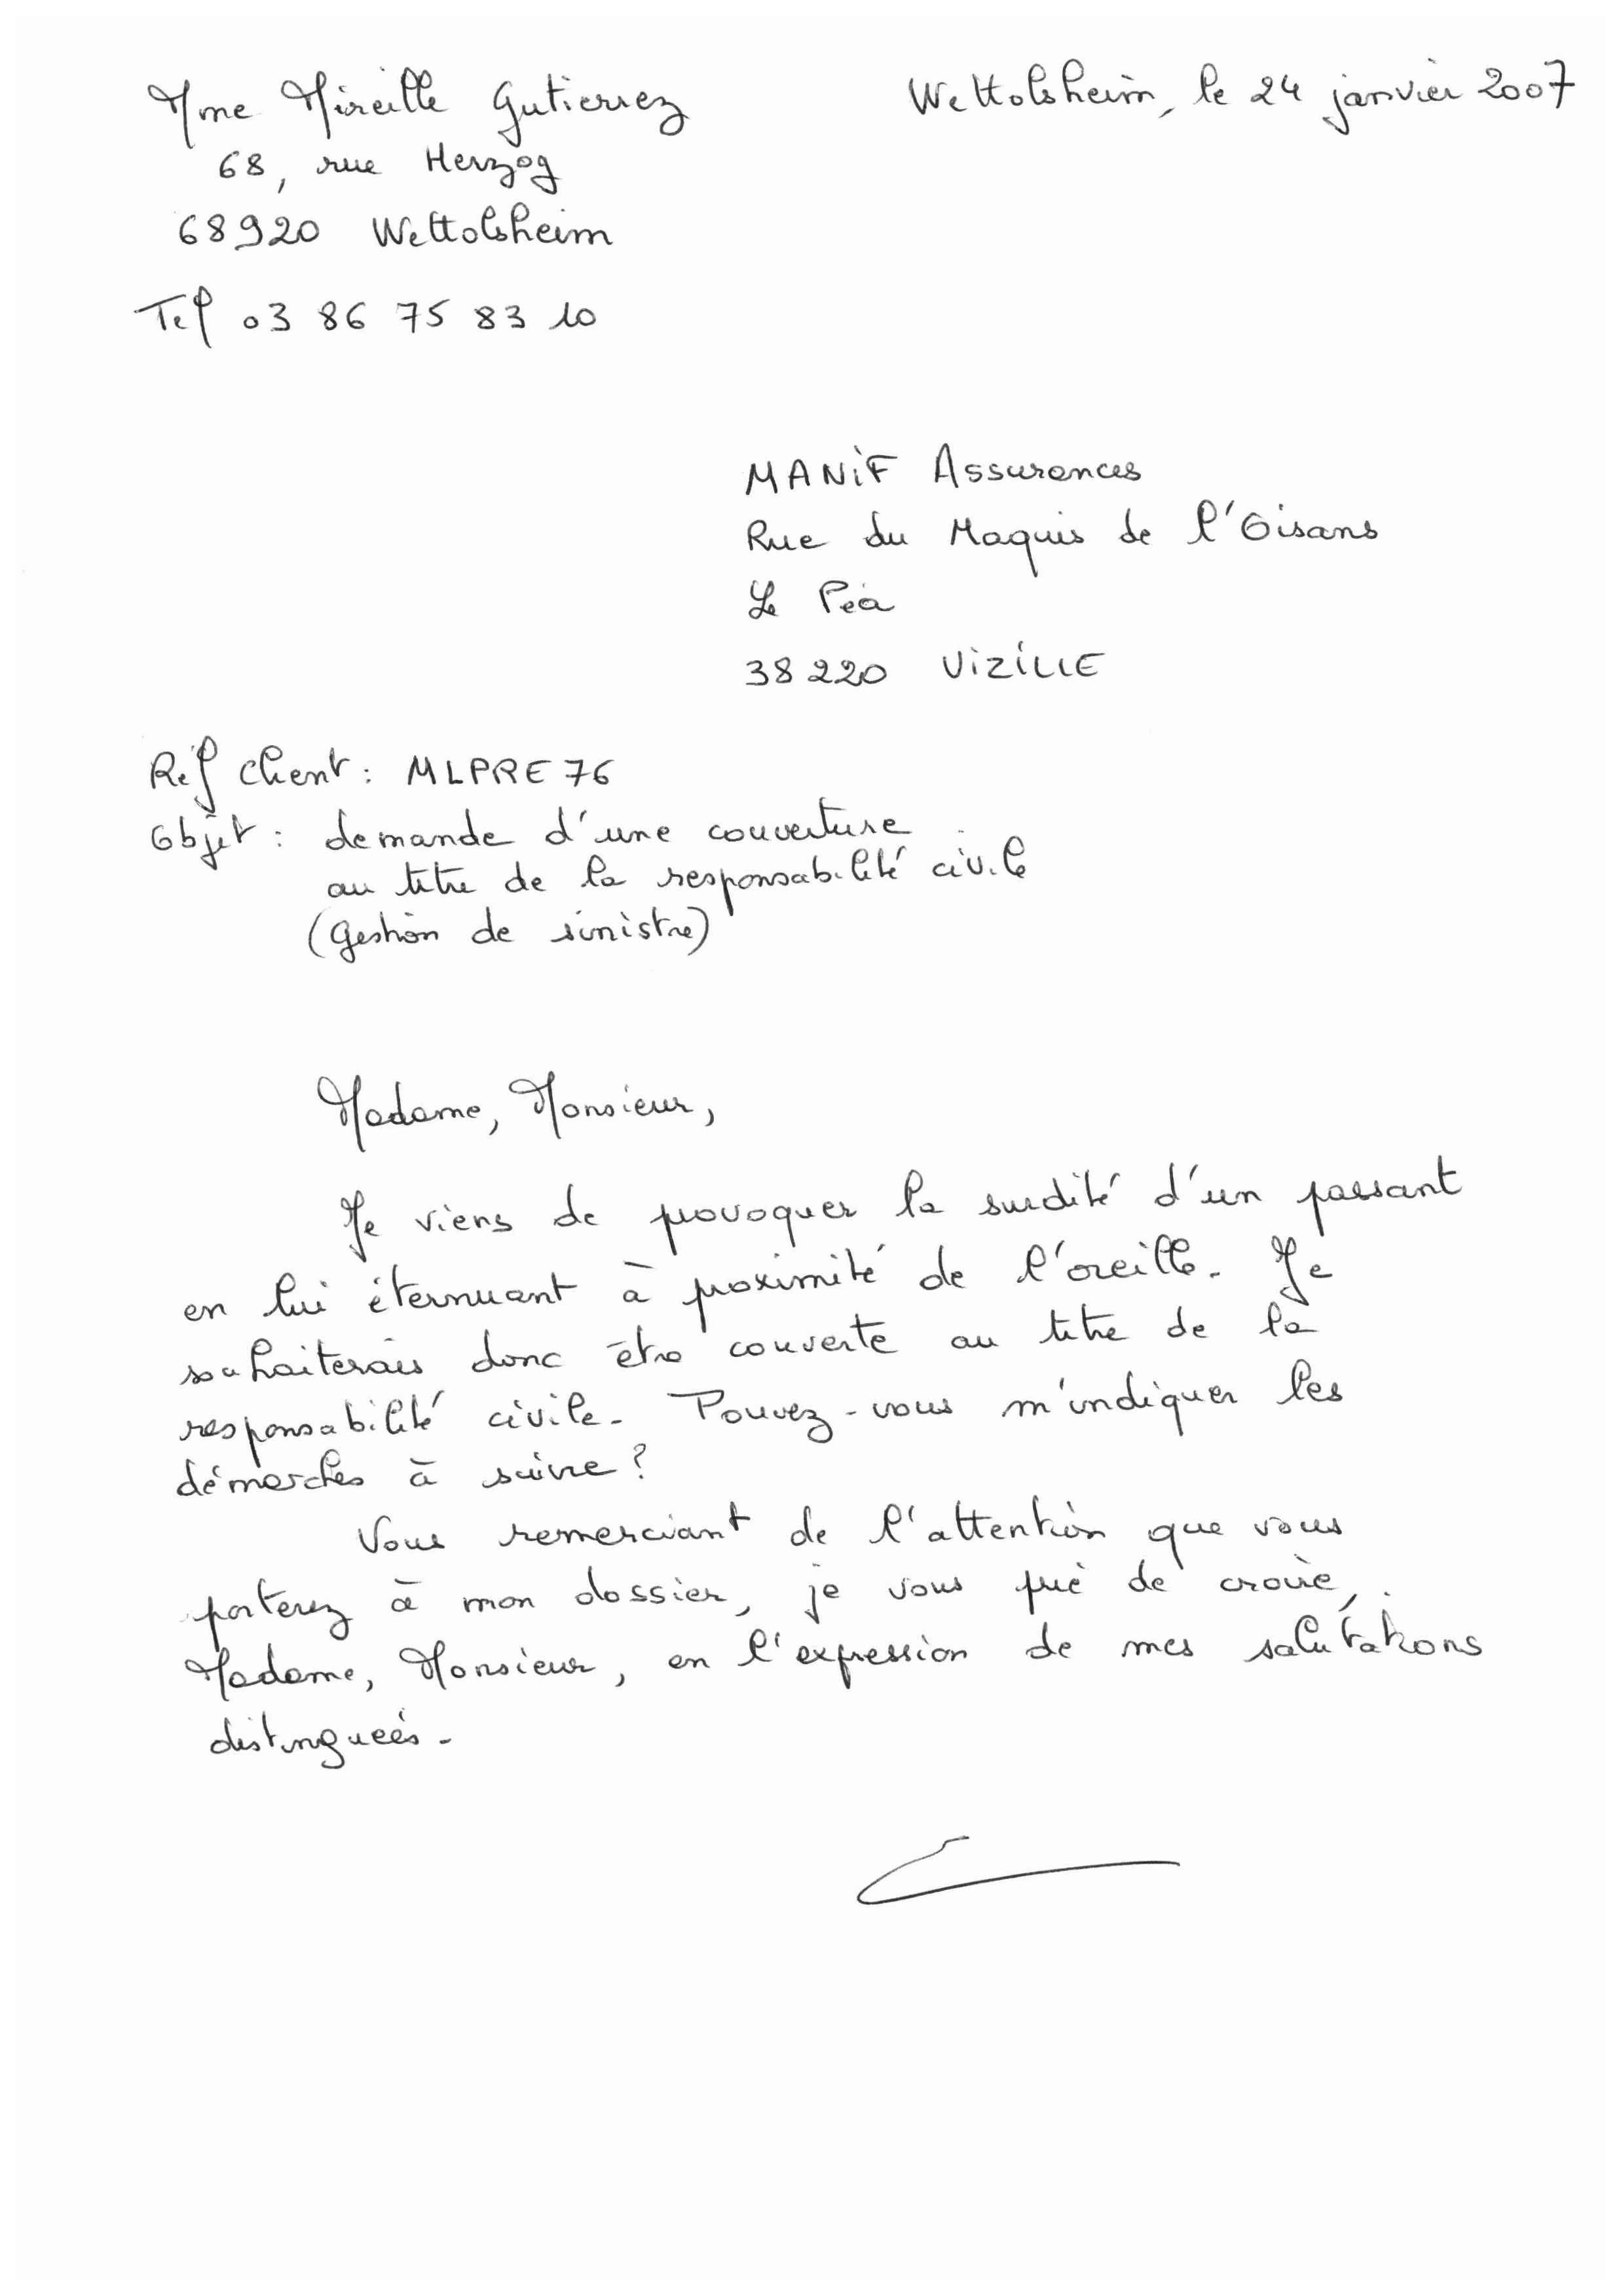 Mme Mireille Gutierrez
Wettolsheim, le 24 janvier 2007
68, rue Herzog
68920 Wettolsheim
Tel 03 86 75 83 10
MANIF Assurances
Rue du Maquis de l'Oisans
Le Péa
38220 VIZILLE
Réf client : MLPRE76
Objet : demande d'une couverture
au titre de la responsabilité civile
(gestion de sinistre)
Madame, Monsieur,
Je viens de provoquer la surdité d'un passant
en lui éternuant à proximité de l'oreille. Je
souhaiterais donc être couverte au titre de la
responsabilité civile. Pouvez-vous m'indiquer les
démarches à suivre ?
Vous remerciant de l'attention que vous
porterez à mon dossier, je vous prie de croire,
Madame, Monsieur, en l'expression de mes salutations
distinguées.